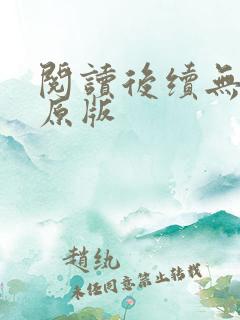 閱讀後續無
原版
趙紈
未經同意禁止轉載